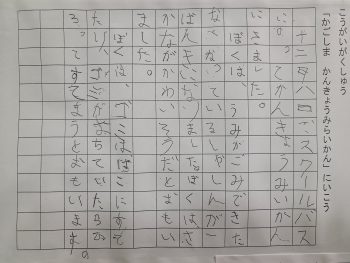 こうがいがくしゅう
「かごしま　かんきょうみらいかん」にいこう
十二月八日、スクールバス
かんきょうみらいかん
にきました。
ぼくは、うみがごみできた
なくなっているしんが
ばんきになりました。さ
かながかわいそうだとぼくはおもい
ました。
ぼくは、ゴミはごみばこにすて
たり、ごみがおちていたらひ
ろってすてようとおもいます。